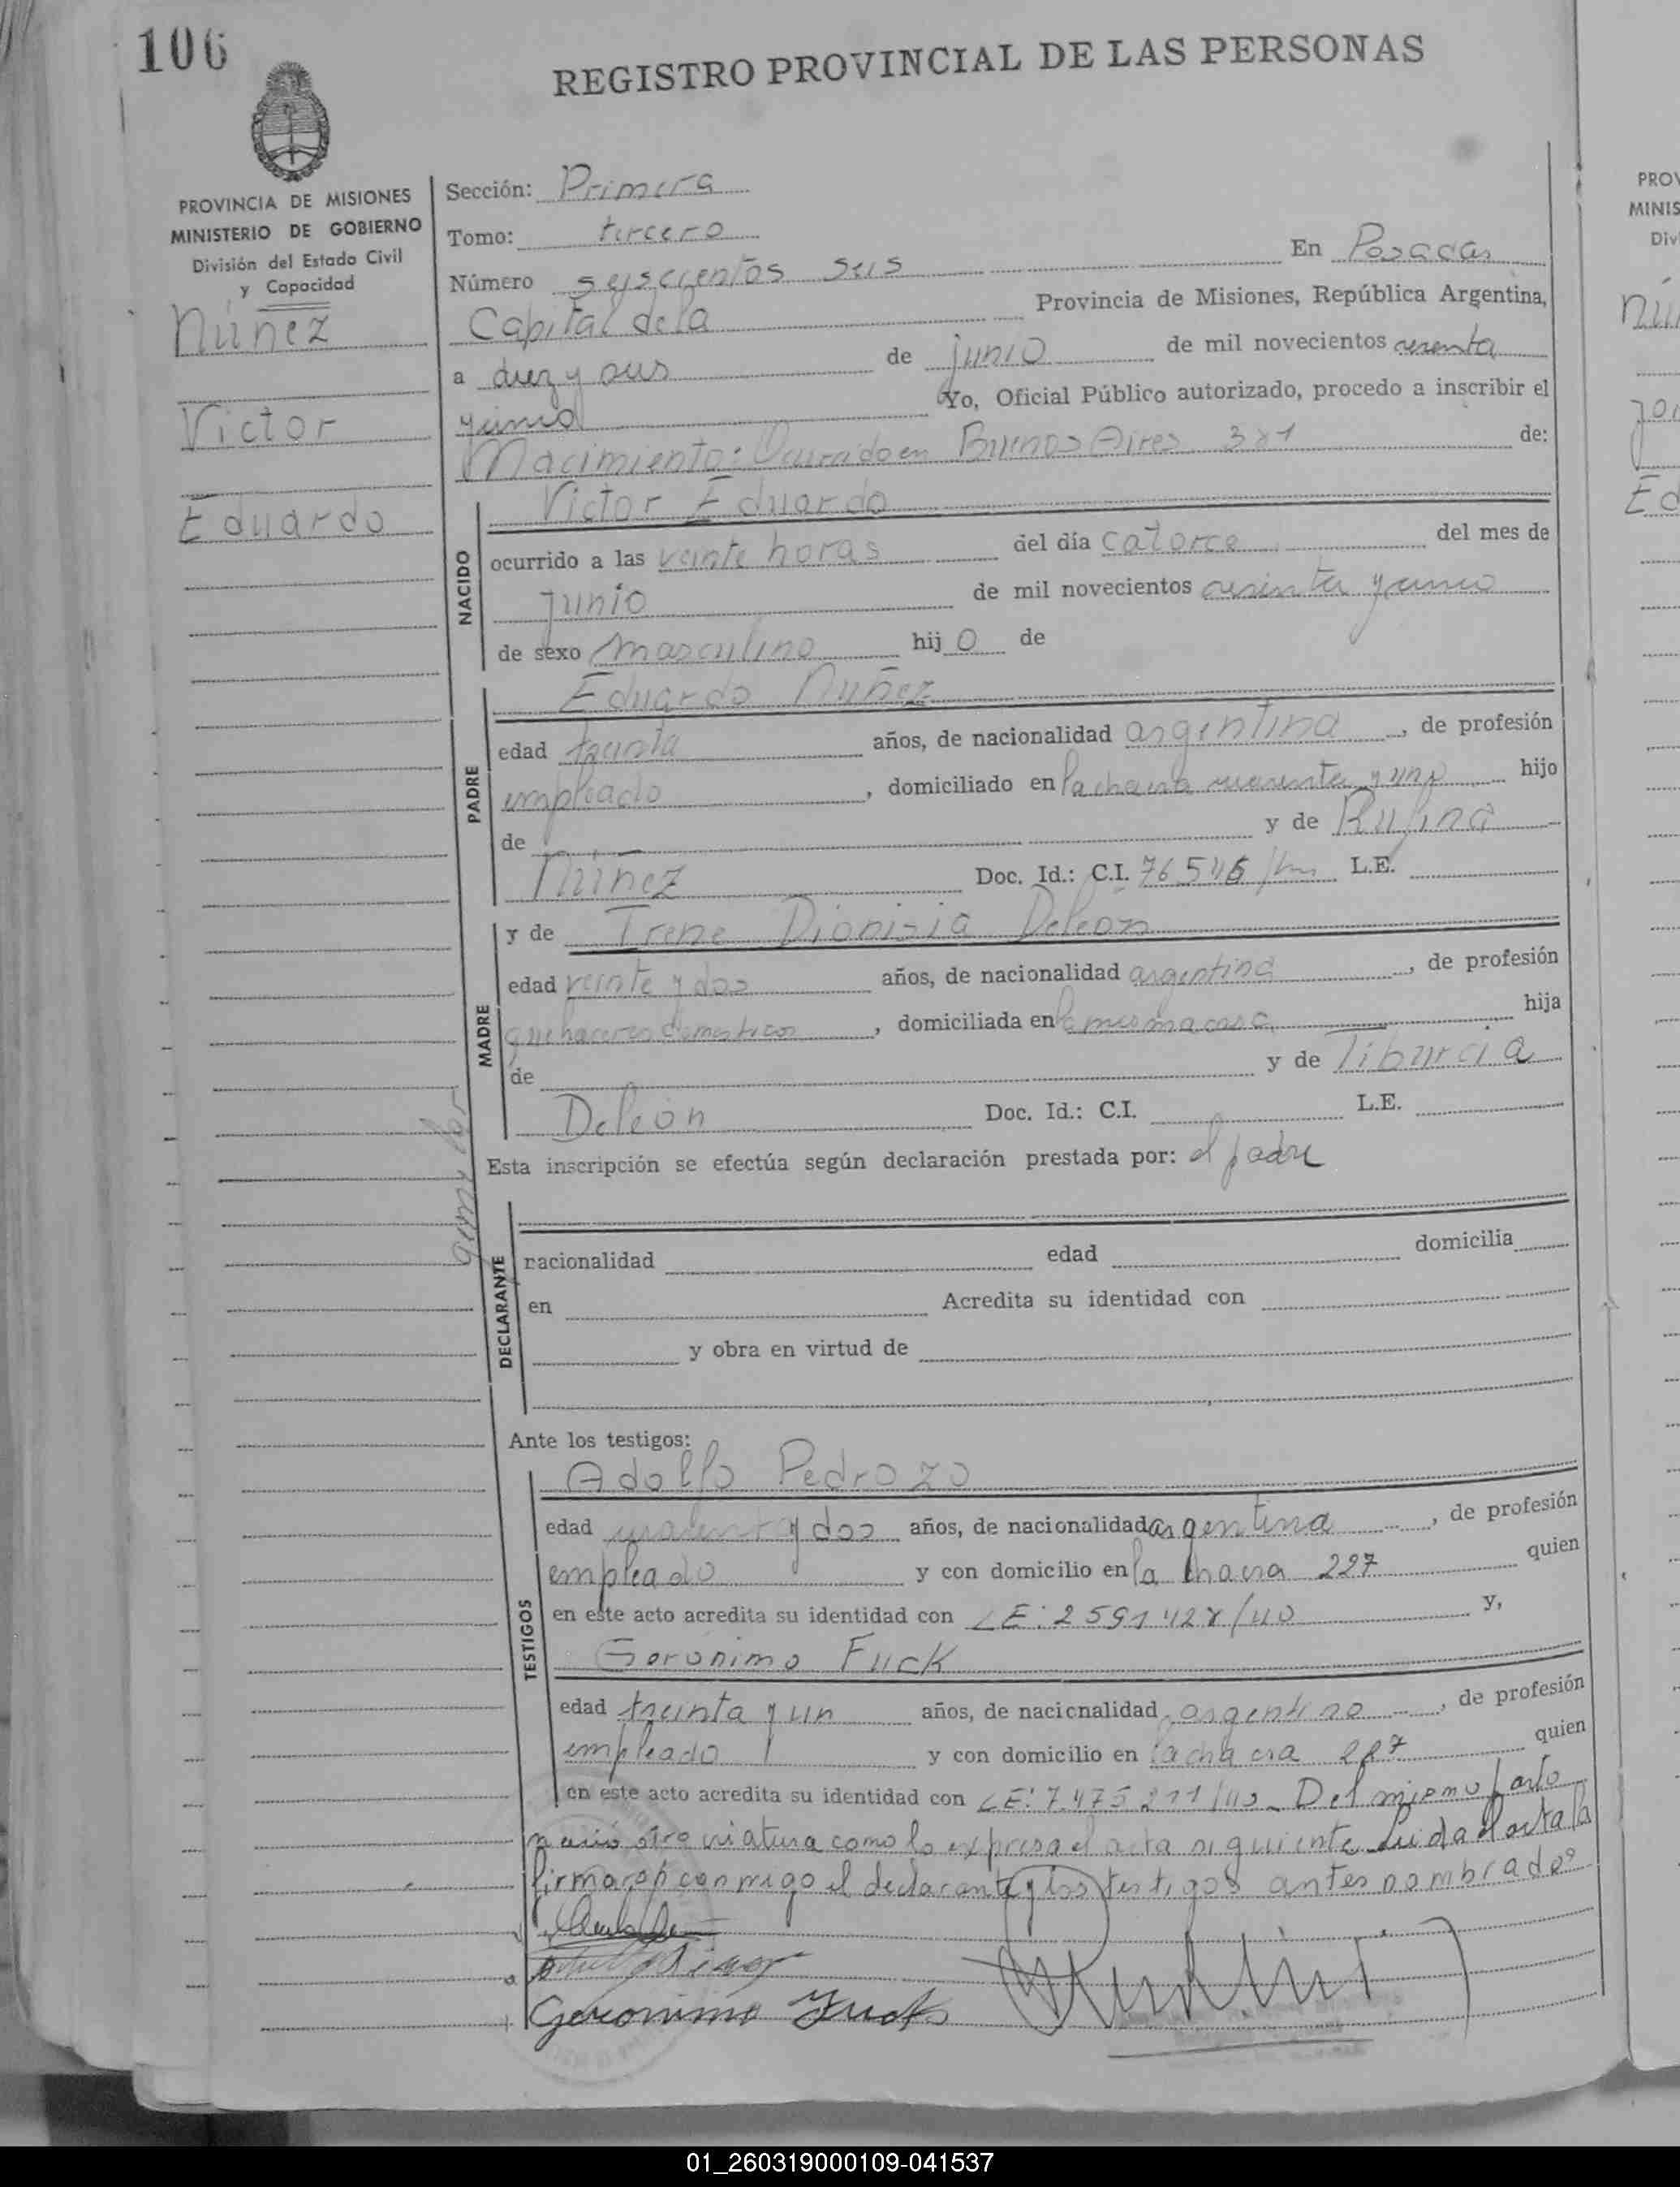 106
REGISTRO PROVINCIAL DE LAS PERSONAS
PROVINCIA DE MISIONES
MINISTERIO DE GOBIERNO
División del Estado Civil
y Capacidad
Núñez
Victor
Eduardo
Sección: Primera
Tomo: tercero
Número seiscientos seis En Posadas
Capital de la Provincia de Misiones, República Argentina,
a diez y seis de junio de mil novecientos sesenta
y uno Yo, Oficial Público autorizado, procedo a inscribir el
Nacimiento: Ocurrido en Buenos Aires 381 de:
NACIDO
Victor Eduardo
ocurrido a las veinte horas del día catorce del mes de
junio de mil novecientos sesenta y uno
de sexo masculino hijo de
PADRE
Eduardo Nuñez
edad treinta años, de nacionalidad argentina, de profesión
empleado, domiciliado en la chacra cuarenta y una hijo
de y de Rufina
Núñez Doc. Id.: C.I. L.E.
MADRE
y de Irene Dionisia Deleón
edad veinte y dos años, de nacionalidad argentina, de profesión
quehaceres domesticos, domiciliada en la misma casa hija
de y de Tiburcia
Deleón Doc. Id.: C.I. L.E.
Esta inscripción se efectúa según declaración prestada por: el padre
DECLARANTE
racionalidad edad domicilia
en Acredita su identidad con
y obra en virtud de
Ante los testigos:
TESTIGOS
Adolfo Pedrozo
edad y dos años, de nacionalidad argentina, de profesión
empleado y con domicilio en la chacra 227 quien
en este acto acredita su identidad con LE: y,
Geronimo Fuck
edad treinta y un años, de nacicnalidad argentino, de profesión
empleado y con domicilio en la chacra 227 quien
en este acto acredita su identidad con LE: 7.475.211/ Del mismo parto
nació otra criatura como lo expresa el acta siguiente. Leida el acta la
firmaron conmigo el declarante y los testigos antes nombrados
Geronimo Fuck
PROV
MINIS
Div
01_260319000109-041537